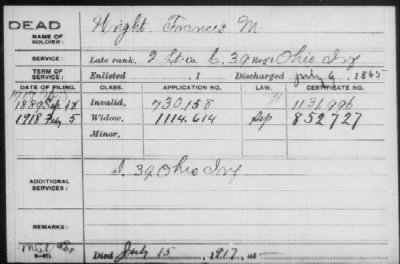 DEAD
NAME OF SOLDIER: Wright, Frances M.
SERVICE: Late rank, 2 Lt Co. C, 39 Reg't Ohio Inf
TERM OF SERVICE: Enlisted , 1 Discharged July 9, 1865
DATE OF FILING. CLASS. APPLICATION NO. LAW. CERTIFICATE NO.
1889 Sep 18 Invalid, 730,158 1131,996
1918 Feb 5 Widow, 1114,614 Sep 852,727
Minor,
ADDITIONAL SERVICES: I. 39 Ohio Inf
REMARKS:
Died July 15, 1917, at